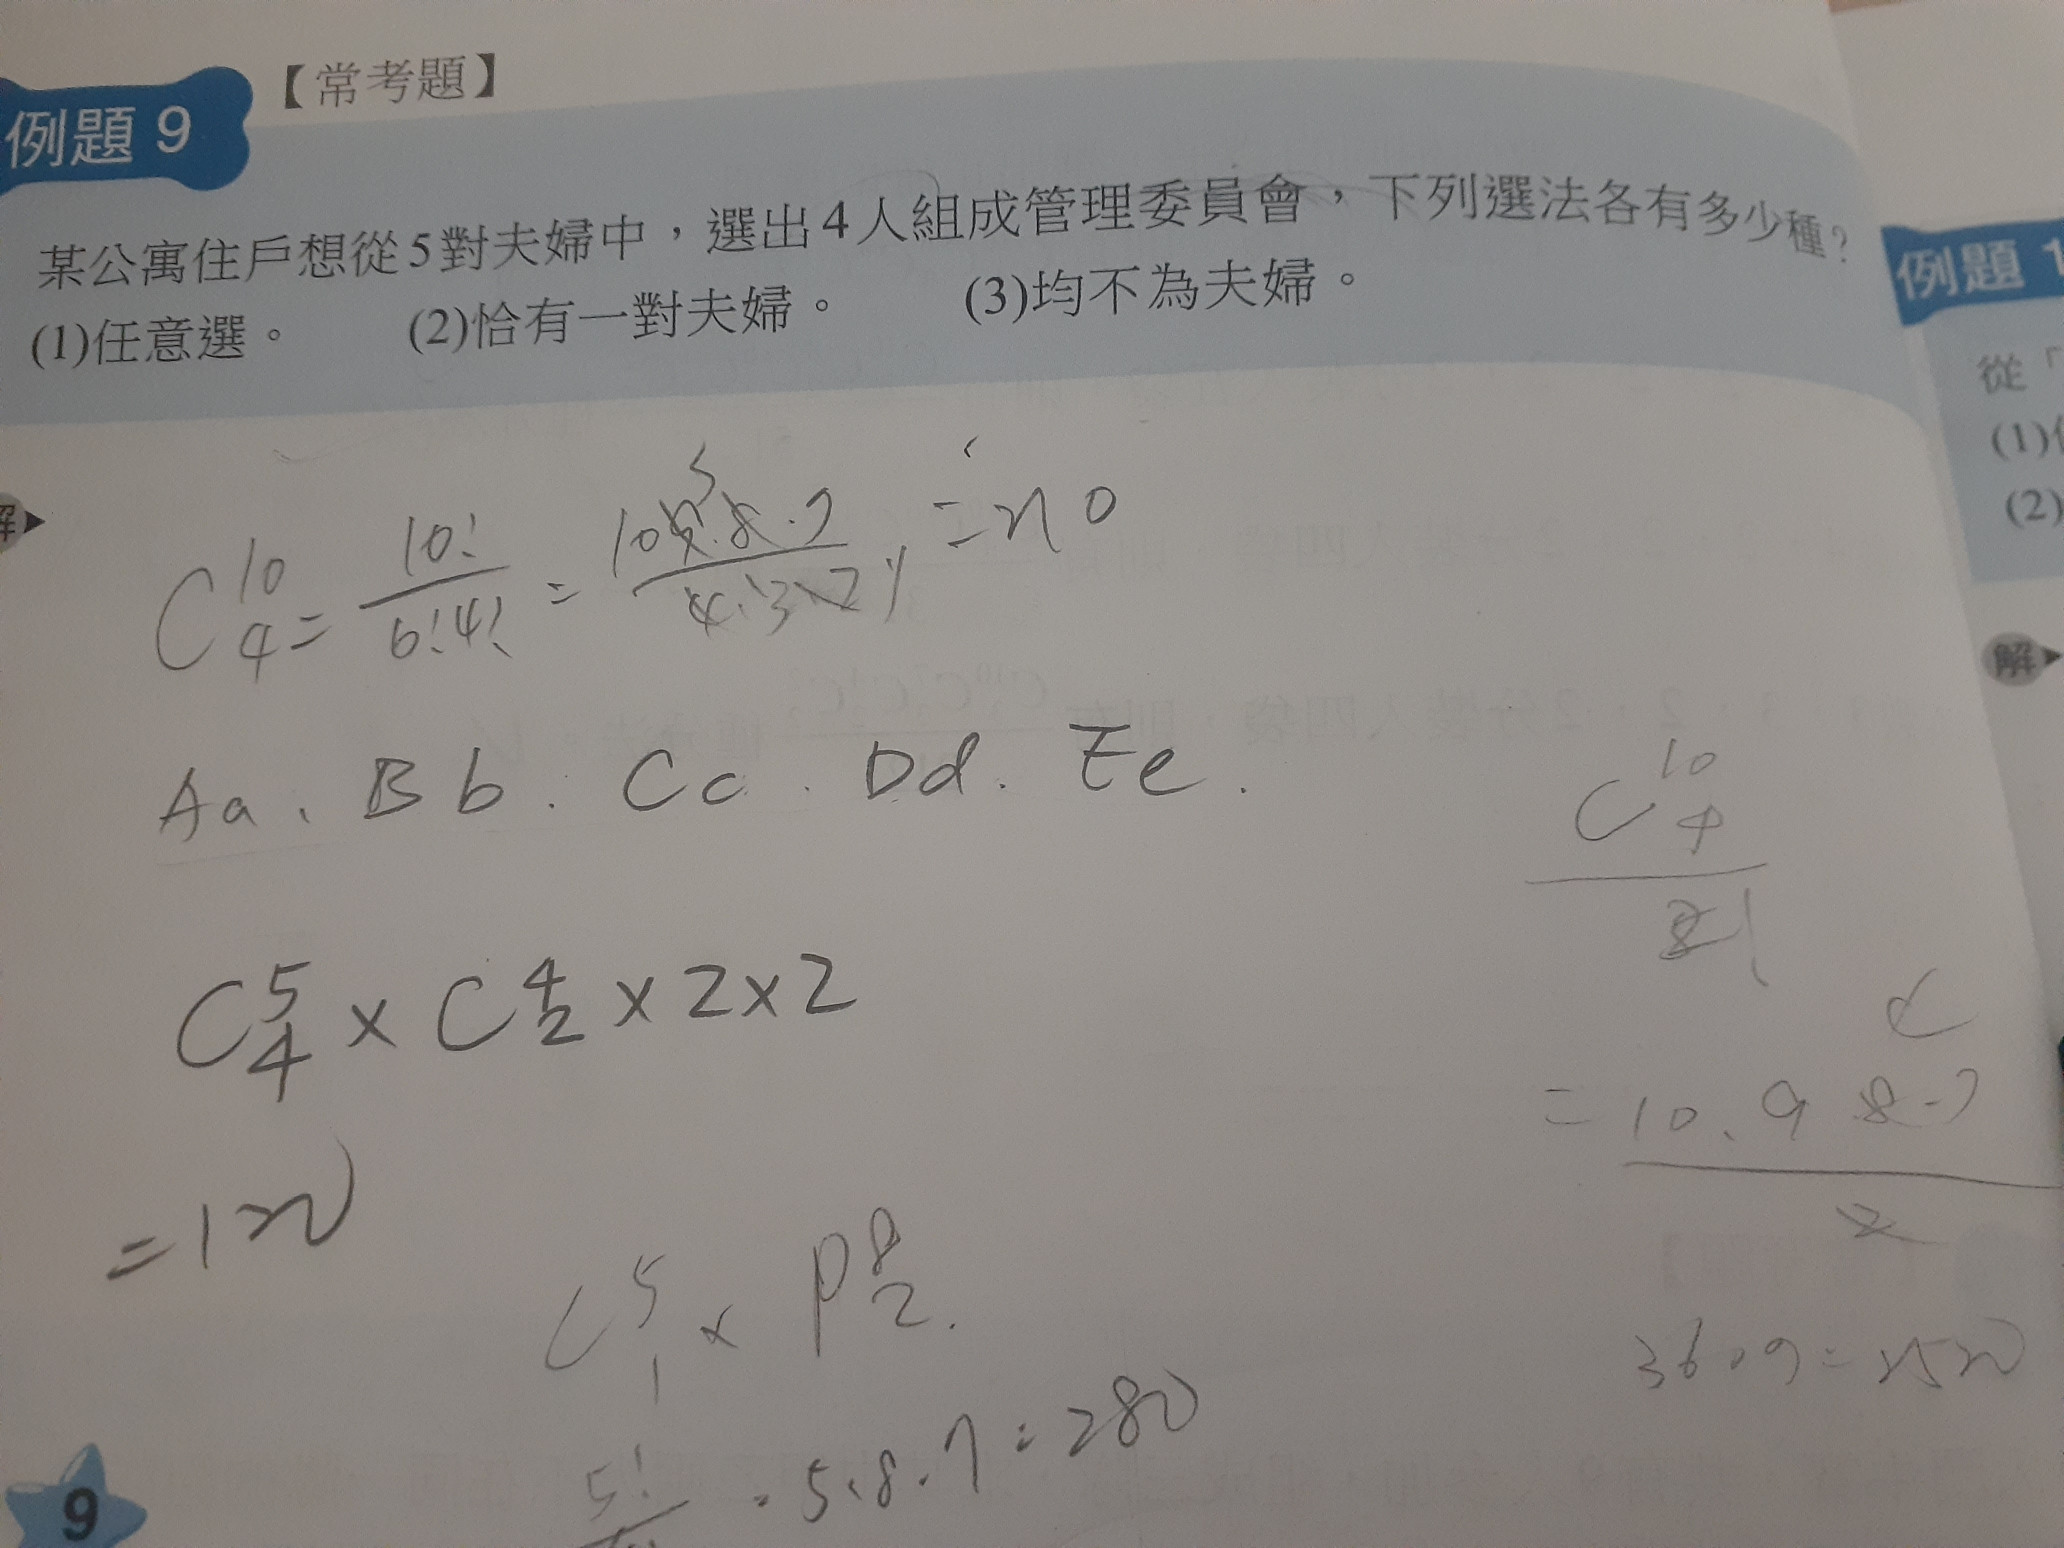 【常考題】
例題 9
某公寓住戶想從5對夫婦中，選出4人組成管理委員會，下列選法各有多少種？
(1)任意選。 (2)恰有一對夫婦。 (3)均不為夫婦。
C 10 4 = 10! / 6!4! = 10·9·8·7 / 4·3·2·1 = 210
Aa、Bb、Cc、Dd、Ee.
C 5 4 × C 4 2 × 2 × 2
= 120
C 5 1 × P 8 2 .
5! = 5·8·7 = 280
C 10 4
= 10.9 8·7
2
= 2520
9
例題 1
從「
(1)
(2)
解